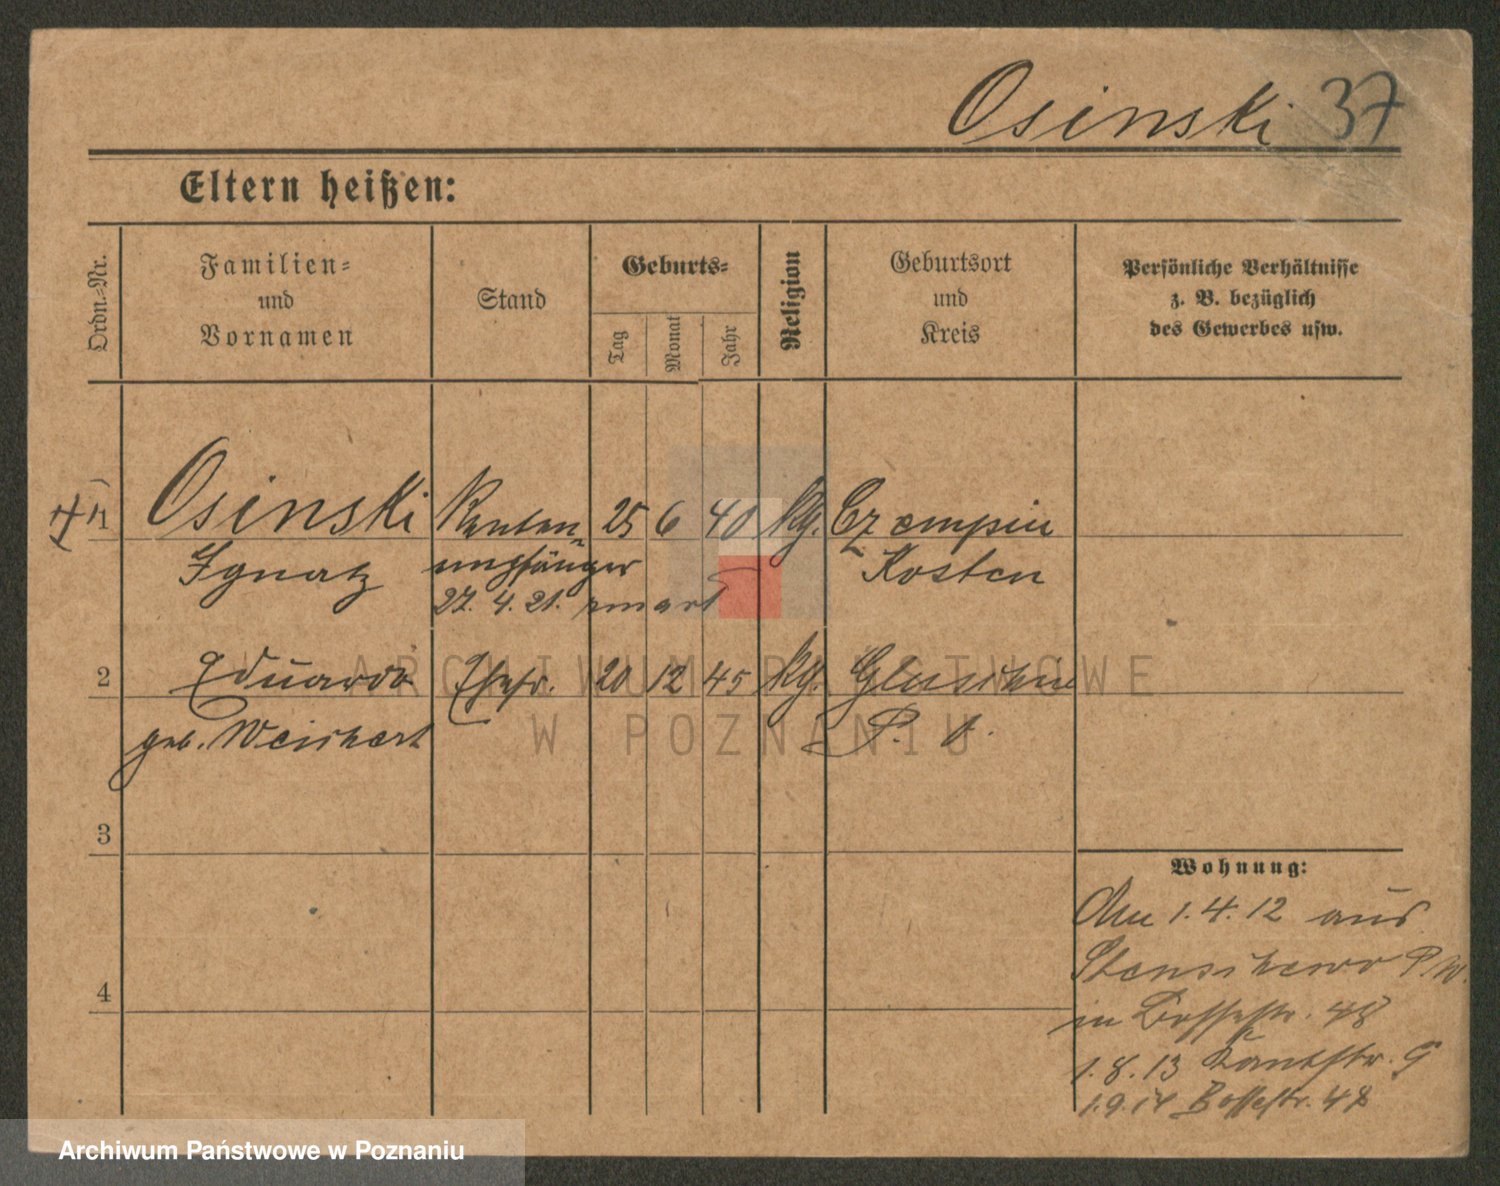 Osinski 37
Eltern heißen:
Ordn.-Nr.
Familien-
und
Vornamen
Stand
Geburts-
Tag
Monat
Jahr
Religion
Geburtsort
und
Kreis
Persönliche Verhältnisse
z. B. bezüglich
des Gewerbes usw.
1 Osinski Renten- 25 6 40 kg. Czempin
Ignatz empfänger Kosten
27. 4. 21.
2 Ehefr. 20 12 45 kg.
geb. P. O.
3
4
Wohnung:
Am 1.4.12 aus
P. W.
in Bossestr. 48
1.8.13 Kantstr. 9
1.9.14 Bossestr. 48
ARCHIWUM PAŃSTWOWE
W POZNANIU
Archiwum Państwowe w Poznaniu